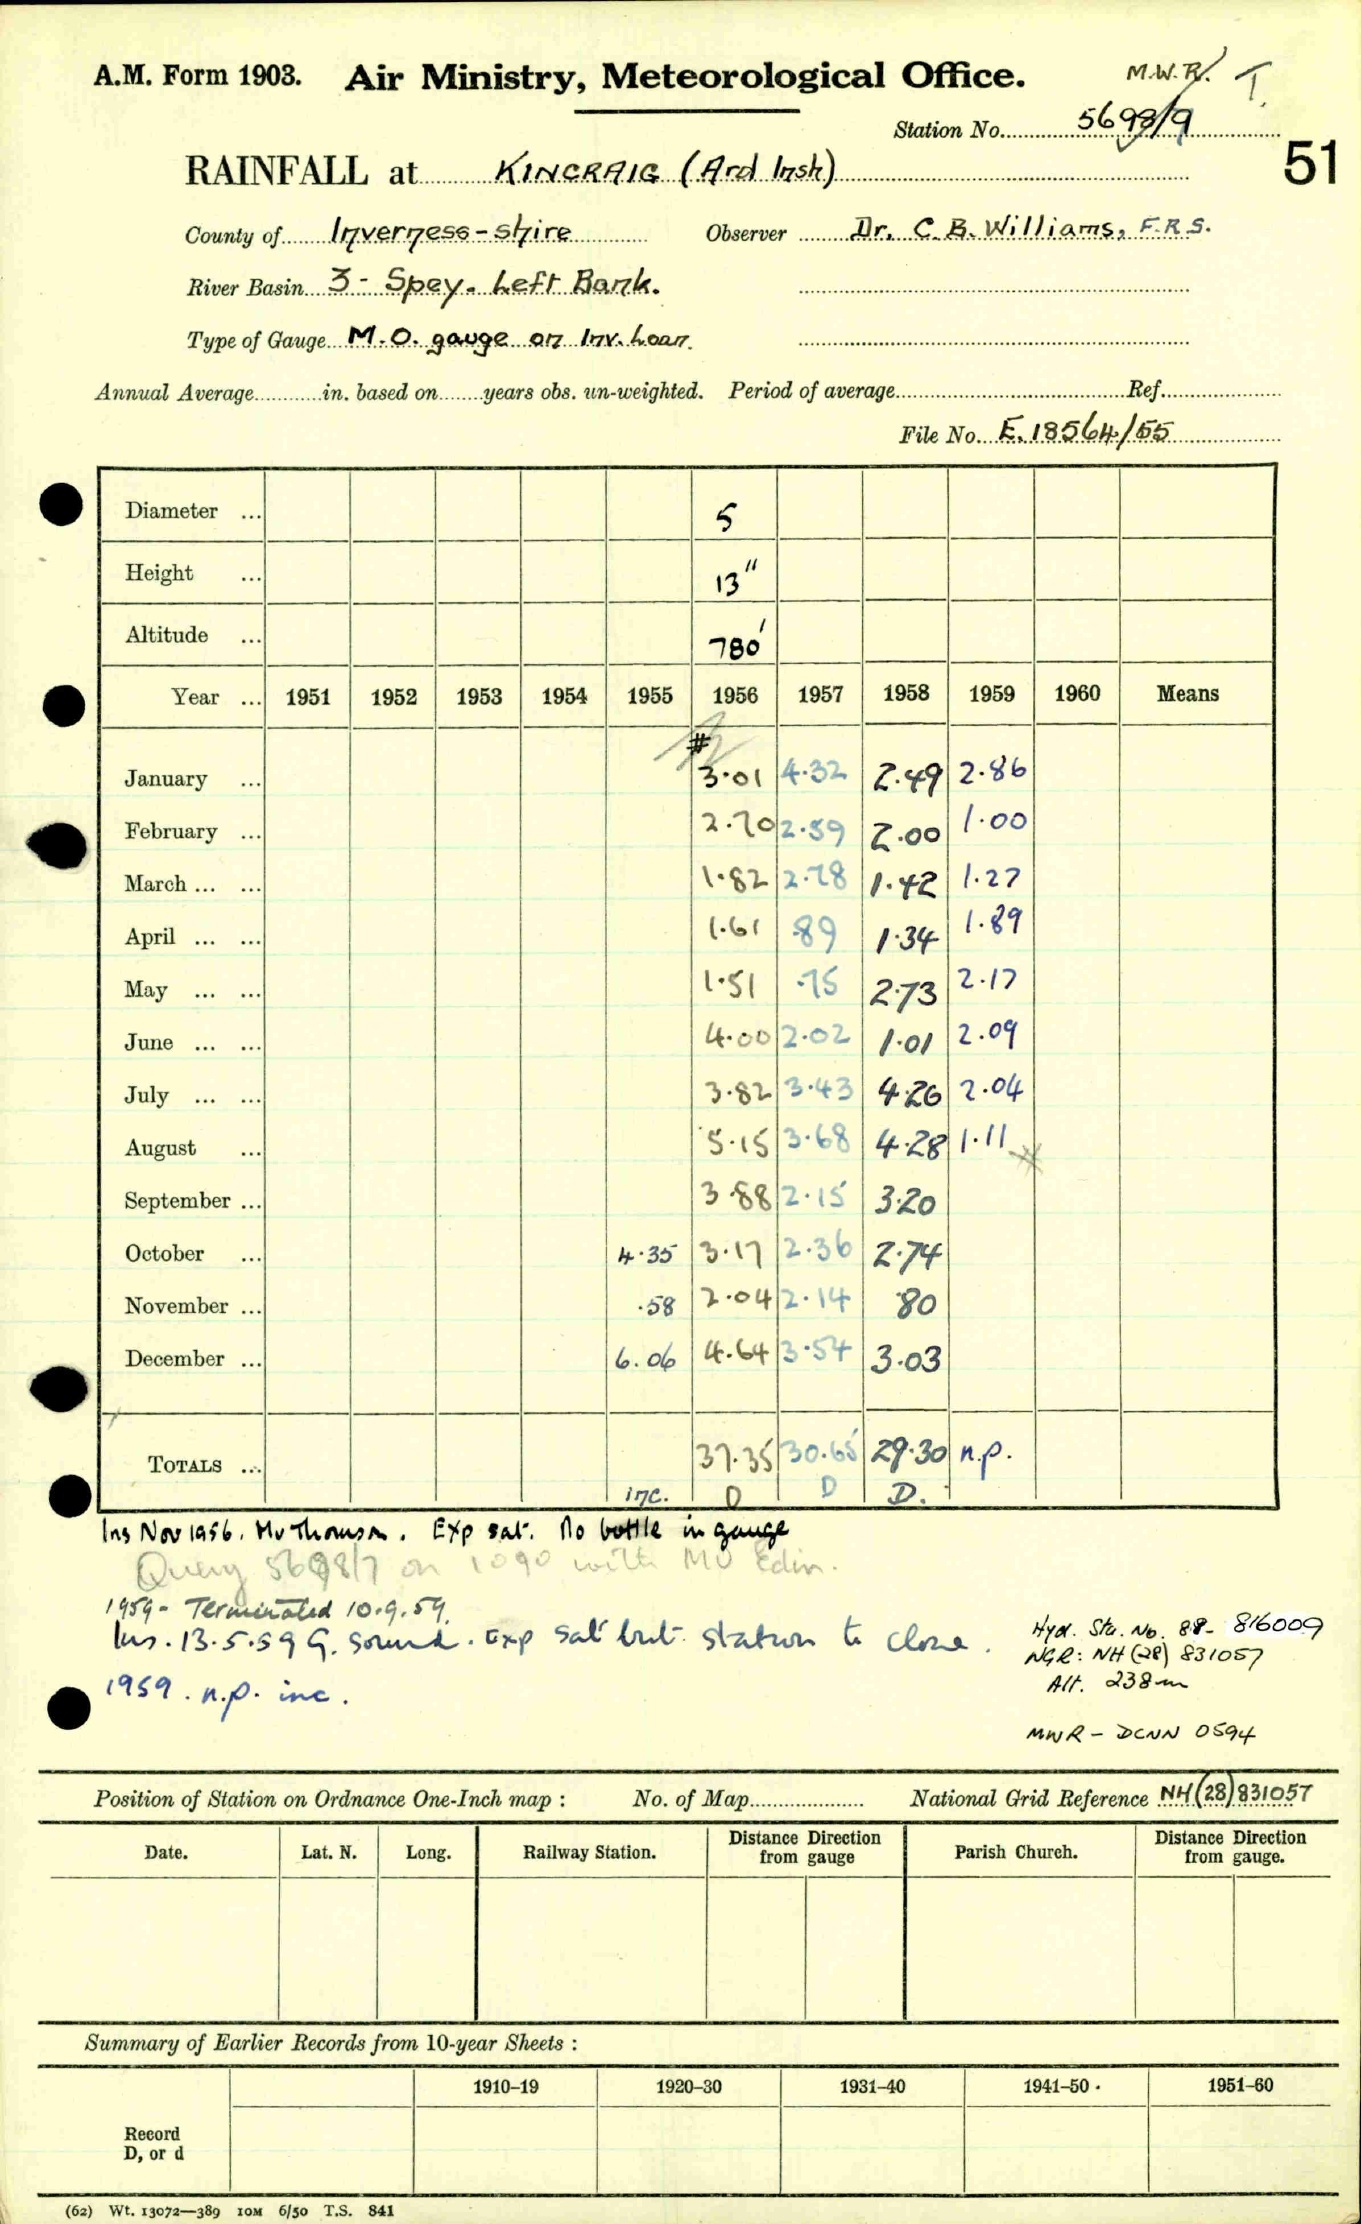 A.M. Form 1903. Air Ministry, Meteorological Office. M.W.R. T.
Station No. 5698/9
51
RAINFALL at KINCRAIG (Ard Insh)
County of Inverness-shire Observer Dr. C.B. Williams, F.R.S.
River Basin 3 - Spey. Left Bank.
Type of Gauge M.O. gauge on Inv. Loan.
Annual Average in. based on years obs. un-weighted. Period of average Ref.
File No. E.18564/55
Diameter ... 5
Height ... 13"
Altitude ... 780'
Year ... 1951 1952 1953 1954 1955 1956 1957 1958 1959 1960 Means
#
January ... 3.01 4.32 2.49 2.86
February ... 2.70 2.59 2.00 1.00
March ... ... 1.82 2.78 1.42 1.27
April ... ... 1.61 .89 1.34 1.89
May ... ... 1.51 .75 2.73 2.17
June ... ... 4.00 2.02 1.01 2.09
July ... ... 3.82 3.43 4.26 2.04
August ... 5.15 3.68 4.28 1.11 #
September ... 3.88 2.15 3.20
October ... 4.35 3.17 2.36 2.74
November ... .58 2.04 2.14 .80
December ... 6.06 4.64 3.54 3.03
TOTALS ... 37.35 30.65 29.30 n.p.
inc. D D D.
Ins Nov 1956. Mr Thomson. Exp sat. No bottle in gauge
Query 5698/7 on 1090 with MO Edin.
1959 - Terminated 10.9.59.
Ins. 13.5.59 G. sound. Exp sat but station to close.
1959. n.p. inc.
Hyd. Sta. No. 88- 816009
NGR: NH (28) 831057
Alt. 238m
MWR - DCNN 0594
Position of Station on Ordnance One-Inch map : No. of Map National Grid Reference NH(28)831057
Date. Lat. N. Long. Railway Station. Distance Direction from gauge Parish Church. Distance Direction from gauge.
Summary of Earlier Records from 10-year Sheets :
1910–19 1920–30 1931–40 1941–50 . 1951–60
Record
D, or d
(62) Wt. 13072—389 10M 6/50 T.S. 841